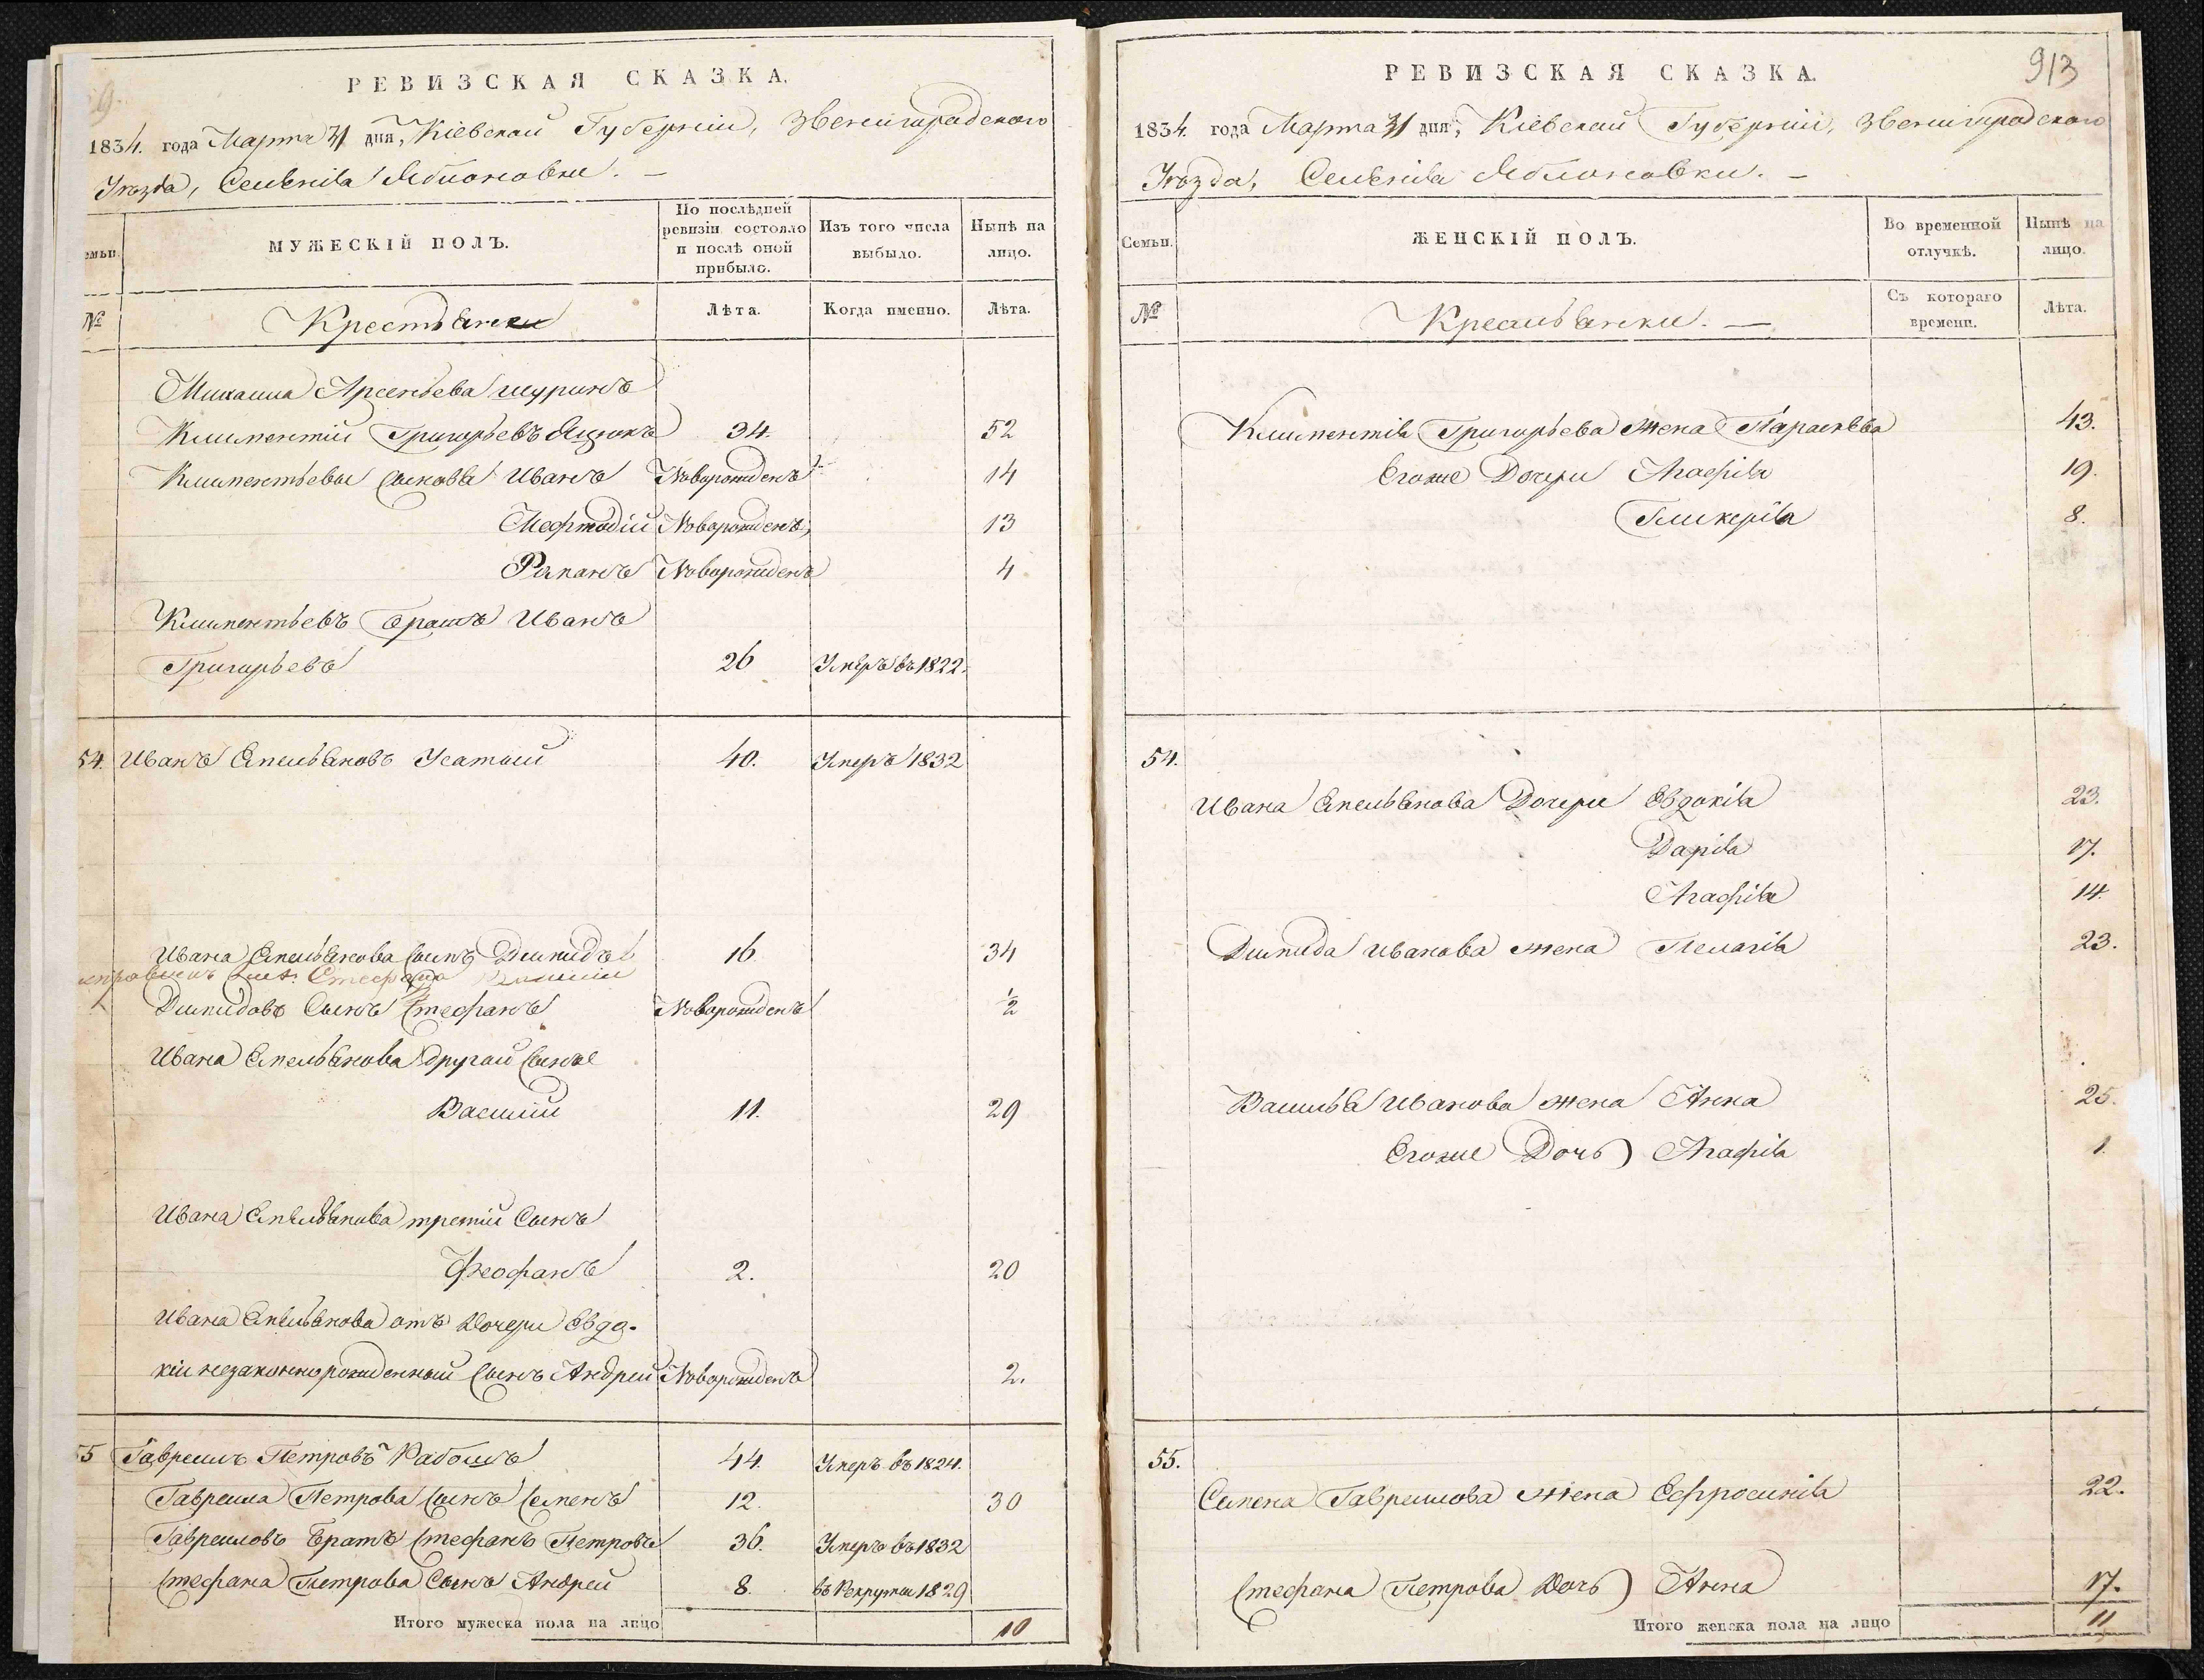 РЕВИЗСКАЯ СКАЗКА.
1834. года Марта 31 дня, Кіевской Губерніи, Звенигородского
Уѣзда, Селенія Яблоновки. —
Семьи.
МУЖЕСКІЙ ПОЛЪ.
По послѣдней ревизіи состояло и послѣ оной прибыло.
Изъ того числа выбыло.
Нынѣ на лицо.
№
Крестьяне
Лѣта.
Когда именно.
Лѣта.
Михаила Арсеньева шуринъ
Климентій Григорьевъ Яцюкъ 34. 52
Климентьевы сыновья Иванъ Новорожденъ 14
Мефтодій Новорожденъ, 13
Романъ Новорожденъ 4
Климентьевъ братъ Иванъ
Григорьевъ 26 Умеръ въ 1822.
54. Иванъ Емельяновъ Усатый 40. Умеръ 1832
Ивана Емельянова сынъ Демидъ 16. 34
Стефана
Демидовъ Сынъ Стефанъ Новорожденъ ½
Ивана Емельянова другой сынъ
Василій 11. 29
Ивана Емельянова третій Сынъ
Феофанъ 2. 20
Ивана Емельянова отъ Дочери Евдо-
кіи незаконнорожденный сынъ Андрей Новорожденъ 2.
55 Гавреилъ Петровъ 44. Умеръ въ 1824.
Гавреила Петрова сынъ Семенъ 12. 30
Гавреиловъ братъ Стефанъ Петровъ 36. Умеръ въ 1832
Стефана Петрова Сынъ Андрей 8. въ Рекруты 1829
Итого мужеска пола на лицо 10
913
РЕВИЗСКАЯ СКАЗКА.
1834. года Марта 31 дня, Кіевской Губерніи, Звенигородского
Уѣзда, Селенія Яблоновки. —
Семьи.
ЖЕНСКІЙ ПОЛЪ.
Во временной отлучкѣ.
Нынѣ на лицо.
№
Крестьянки. —
Съ котораго времени.
Лѣта.
Климентія Григорьева жена Параскева 43.
Егоже Дочери Агафія 19.
Гликерія 8.
54.
Ивана Емельянова Дочери Евдокія 23.
Дарія 17.
Агафія 14.
Демида Иванова жена Пелагія 23.
Василья Иванова жена Анна 25.
Егоже Дочь Агафія 1.
55.
Семена Гавреилова жена Ефросинія 22.
Стефана Петрова Дочь Анна 17.
Итого женска пола на лицо 11